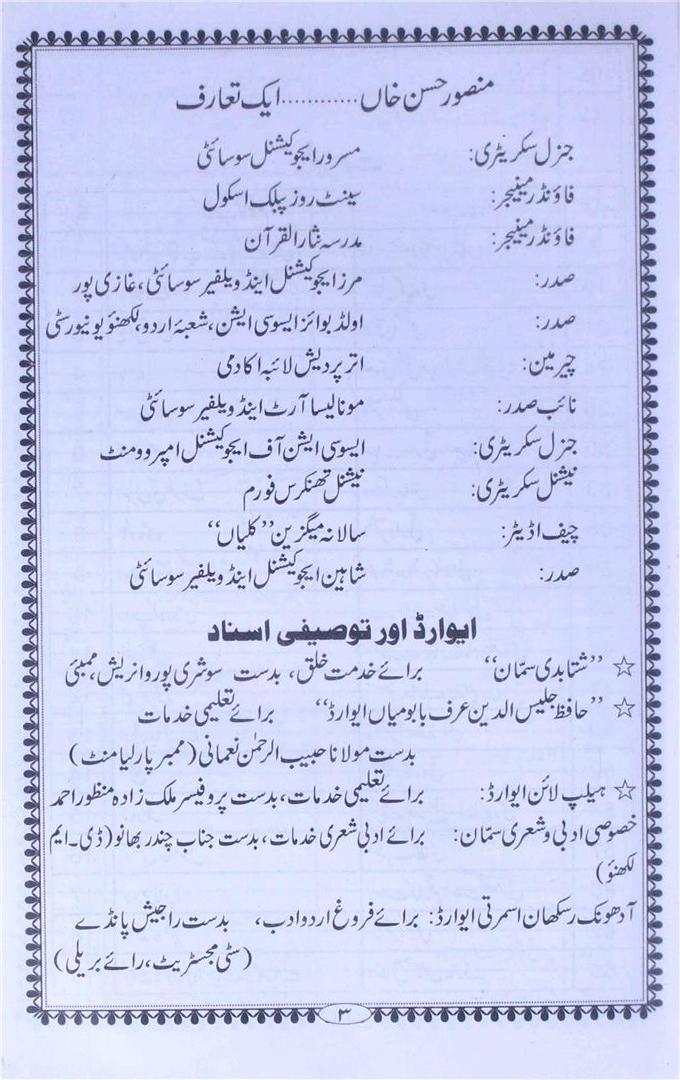 منصور حسن خاں............ایک تعارف
جنرل سکریٹری: مسرور ایجوکیشنل سوسائٹی
فاؤنڈر مینیجر: سینٹ روز پبلک اسکول
فاؤنڈر مینیجر: مدرسہ نثار القرآن
صدر: مرزا ایجوکیشنل اینڈ ویلفیر سوسائٹی، غازی پور
صدر: اولڈ بوائز ایسوسی ایشن، شعبۂ اردو، لکھنؤ یونیورسٹی
چیرمین: اتر پردیش لائبہ اکادمی
نائب صدر: مونالیسا آرٹ اینڈ ویلفیر سوسائٹی
جنرل سکریٹری: ایسوسی ایشن آف ایجوکیشنل امپروومنٹ
نیشنل سکریٹری: نیشنل تھنکرس فورم
چیف اڈیٹر: سالانہ میگزین ”کلیاں“
صدر: شاہین ایجوکیشنل اینڈ ویلفیر سوسائٹی
ایوارڈ اور توصیفی اسناد
☆ ”شتابدی سمّان“ برائے خدمت خلق، بدست سوشری پوروانریش، ممبئی
☆ ”حافظ جلیس الدین عرف بابو میاں ایوارڈ“ برائے تعلیمی خدمات
بدست مولانا حبیب الرحمٰن نعمانی (ممبر پارلیامنٹ)
☆ ہیلپ لائن ایوارڈ: برائے تعلیمی خدمات، بدست پروفیسر ملک زادہ منظور احمد
خصوصی ادبی و شعری سمّان: برائے ادبی شعری خدمات، بدست جناب چندر بھانو (ڈی۔ایم
لکھنؤ)
آدھونک رسکھان اسمرتی ایوارڈ: برائے فروغ اردو ادب، بدست راجیش پانڈے
(سٹی مجسٹریٹ، رائے بریلی)
۳